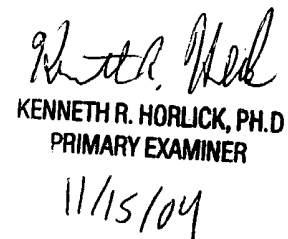 Kenneth R. Horlick
KENNETH R. HORLICK, PH.D
PRIMARY EXAMINER
11/15/04